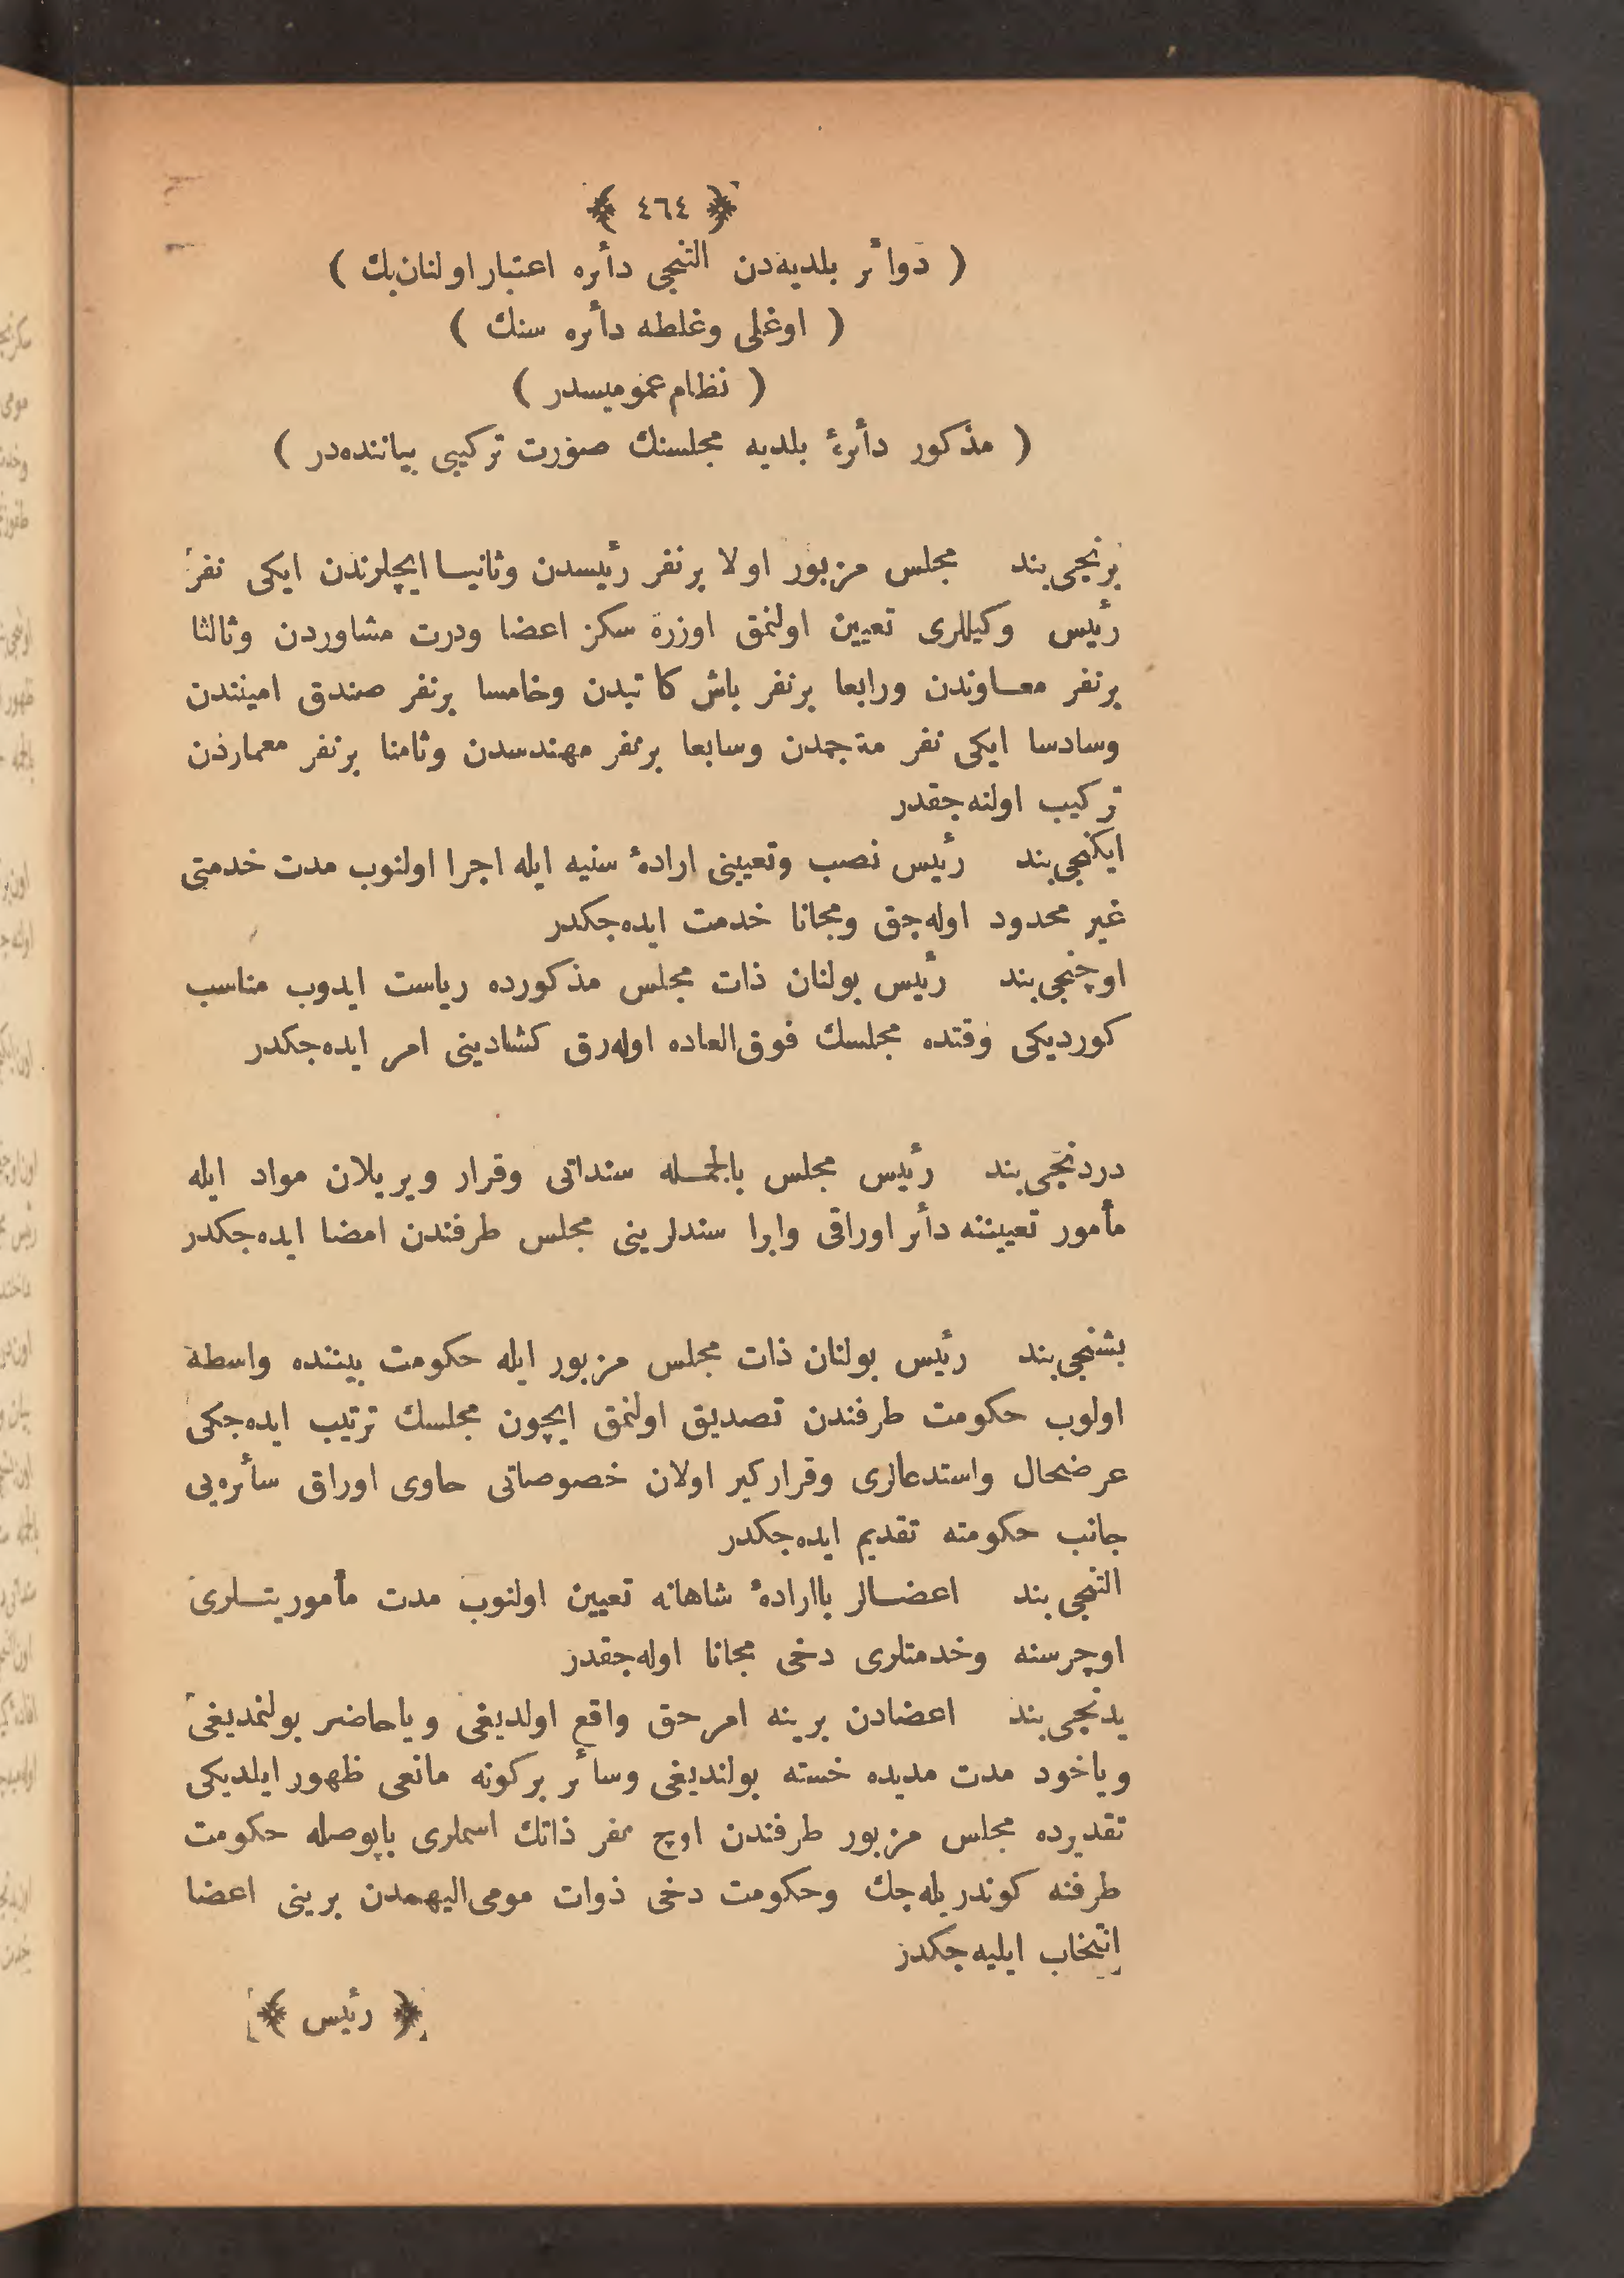 ﴿ ٤٦٤ ﴾
( دوائر بلدیه‌دن التنجی دائره اعتبار اولنان بك )
( اوغلی وغلطه دائره سنك )
( نظام عمومیسدر )
( مذكور دائرۀ بلدیه مجلسنك صورت تركیبی بیاننده‌در )
برنجی بند مجلس مزبور اولا برنفر رئیسدن وثانیا ایچلرندن ایكی نفر
رئیس وكیللری تعیین اولنمق اوزره سكز اعضا ودرت مشاوردن وثالثا
برنفر معاوندن ورابعا برنفر باش كاتبدن وخامسا برنفر صندق امینندن
وسادسا ایكی نفر مترجمدن وسابعا برنفر مهندسدن وثامنا برنفر معماردن
تركیب اولنه‌جقدر
ایكنجی بند رئیس نصب وتعیینی ارادۀ سنیه ایله اجرا اولنوب مدت خدمتی
غیر محدود اوله‌جق ومجانا خدمت ایده‌جكدر
اوچنجی بند رئیس بولنان ذات مجلس مذكورده ریاست ایدوب مناسب
كوردیكی وقتده مجلسك فوق‌العاده اوله‌رق كشادینی امر ایده‌جكدر
دردنجی بند رئیس مجلس بالجمله سنداتی وقرار ویریلان مواد ایله
مأمور تعییننه دائر اوراقی وابرا سندلرینی مجلس طرفندن امضا ایده‌جكدر
بشنجی بند رئیس بولنان ذات مجلس مزبور ایله حكومت بیننده واسطه
اولوب حكومت طرفندن تصدیق اولنمق ایچون مجلسك ترتیب ایده‌جكی
عرضحال واستدعالری وقراركیر اولان خصوصاتی حاوی اوراق سائره‌یی
جانب حكومته تقدیم ایده‌جكدر
التنجی بند اعضالر باارادۀ شاهانه تعیین اولنوب مدت مأموریتلری
اوچر سنه وخدمتلری دخی مجانا اوله‌جقدر
یدنجی بند اعضادن برینه امر حق واقع اولدیغی ویا حاضر بولنمدیغی
ویاخود مدت مدیده خسته بولندیغی وسائر بركونه مانعی ظهور ایلدیكی
تقدیرده مجلس مزبور طرفندن اوچ نفر ذاتك اسملری باپوصله حكومت
طرفنه كوندریله‌جك وحكومت دخی ذوات مومی‌الیهمدن برینی اعضا
انتخاب ایلیه‌جكدر
﴿ رئیس ﴾